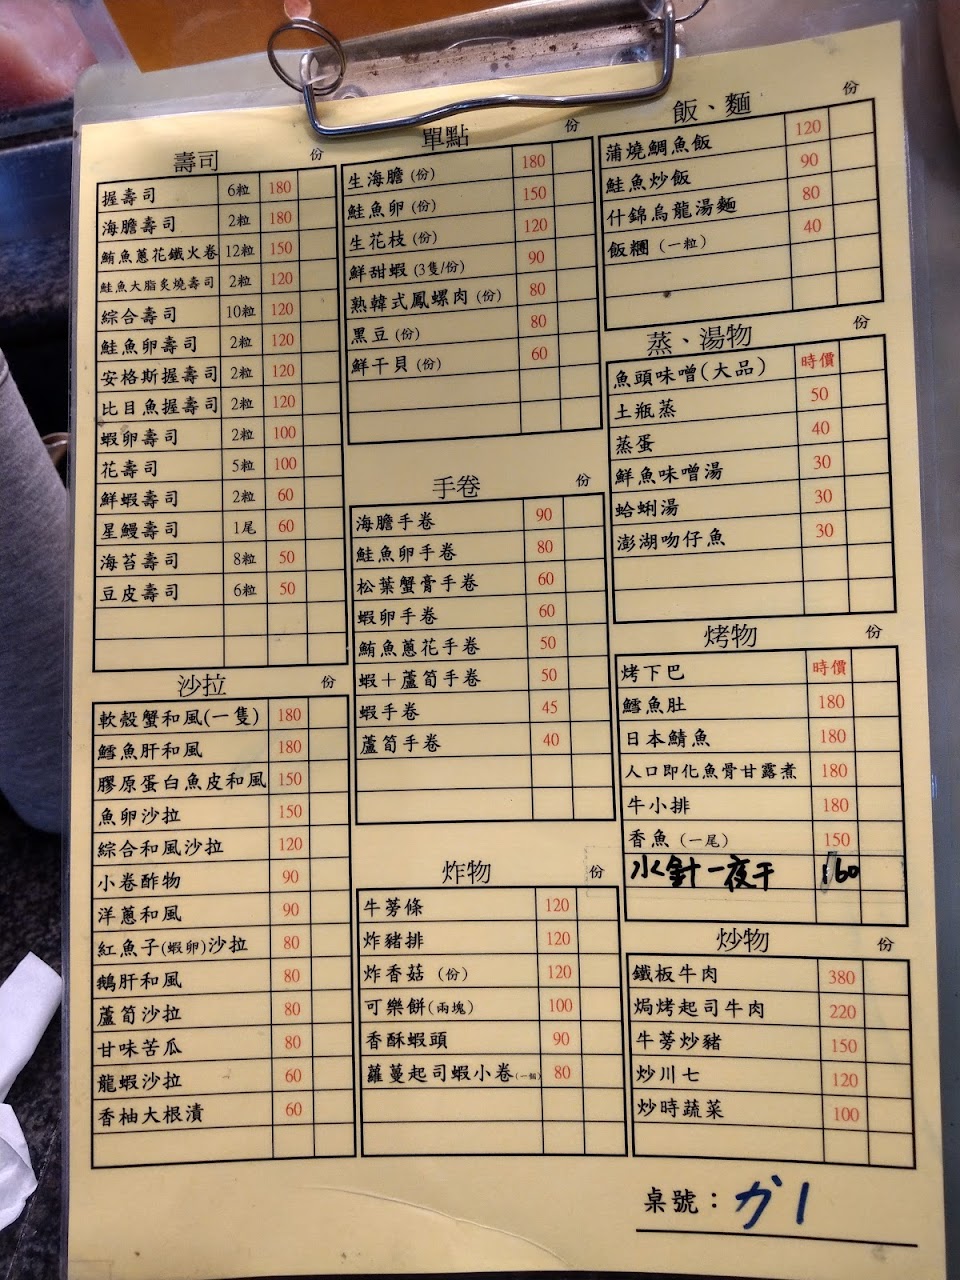 壽司 份
握壽司 6粒 180
海膽壽司 2粒 180
鮪魚蔥花鐵火卷 12粒 150
鮭魚大脂炙燒壽司 2粒 120
綜合壽司 10粒 120
鮭魚卵壽司 2粒 120
安格斯握壽司 2粒 120
比目魚握壽司 2粒 120
蝦卵壽司 2粒 100
花壽司 5粒 100
鮮蝦壽司 2粒 60
星鰻壽司 1尾 60
海苔壽司 8粒 50
豆皮壽司 6粒 50
沙拉 份
軟殼蟹和風(一隻) 180
鱈魚肝和風 180
膠原蛋白魚皮和風 150
魚卵沙拉 150
綜合和風沙拉 120
小卷酢物 90
洋蔥和風 90
紅魚子(蝦卵)沙拉 80
鵝肝和風 80
蘆筍沙拉 80
甘味苦瓜 80
龍蝦沙拉 60
香柚大根漬 60
單點 份
生海膽(份) 180
鮭魚卵(份) 150
生花枝(份) 120
鮮甜蝦(3隻/份) 90
熟韓式鳳螺肉(份) 80
黑豆(份) 80
鮮干貝(份) 60
手卷 份
海膽手卷 90
鮭魚卵手卷 80
松葉蟹膏手卷 60
蝦卵手卷 60
鮪魚蔥花手卷 50
蝦＋蘆筍手卷 50
蝦手卷 45
蘆筍手卷 40
炸物 份
牛蒡條 120
炸豬排 120
炸香菇(份) 120
可樂餅(兩塊) 100
香酥蝦頭 90
蘿蔓起司蝦小卷(一個) 80
飯、麵 份
蒲燒鯛魚飯 120
鮭魚炒飯 90
什錦烏龍湯麵 80
飯糰(一粒) 40
蒸、湯物 份
魚頭味噌(大品) 時價
土瓶蒸 50
蒸蛋 40
鮮魚味噌湯 30
蛤蜊湯 30
澎湖吻仔魚 30
烤物 份
烤下巴 時價
鱈魚肚 180
日本鯖魚 180
人口即化魚骨甘露煮 180
牛小排 180
香魚(一尾) 150
水針一夜干 160
炒物 份
鐵板牛肉 380
焗烤起司牛肉 220
牛蒡炒豬 150
炒川七 120
炒時蔬菜 100
桌號：か1